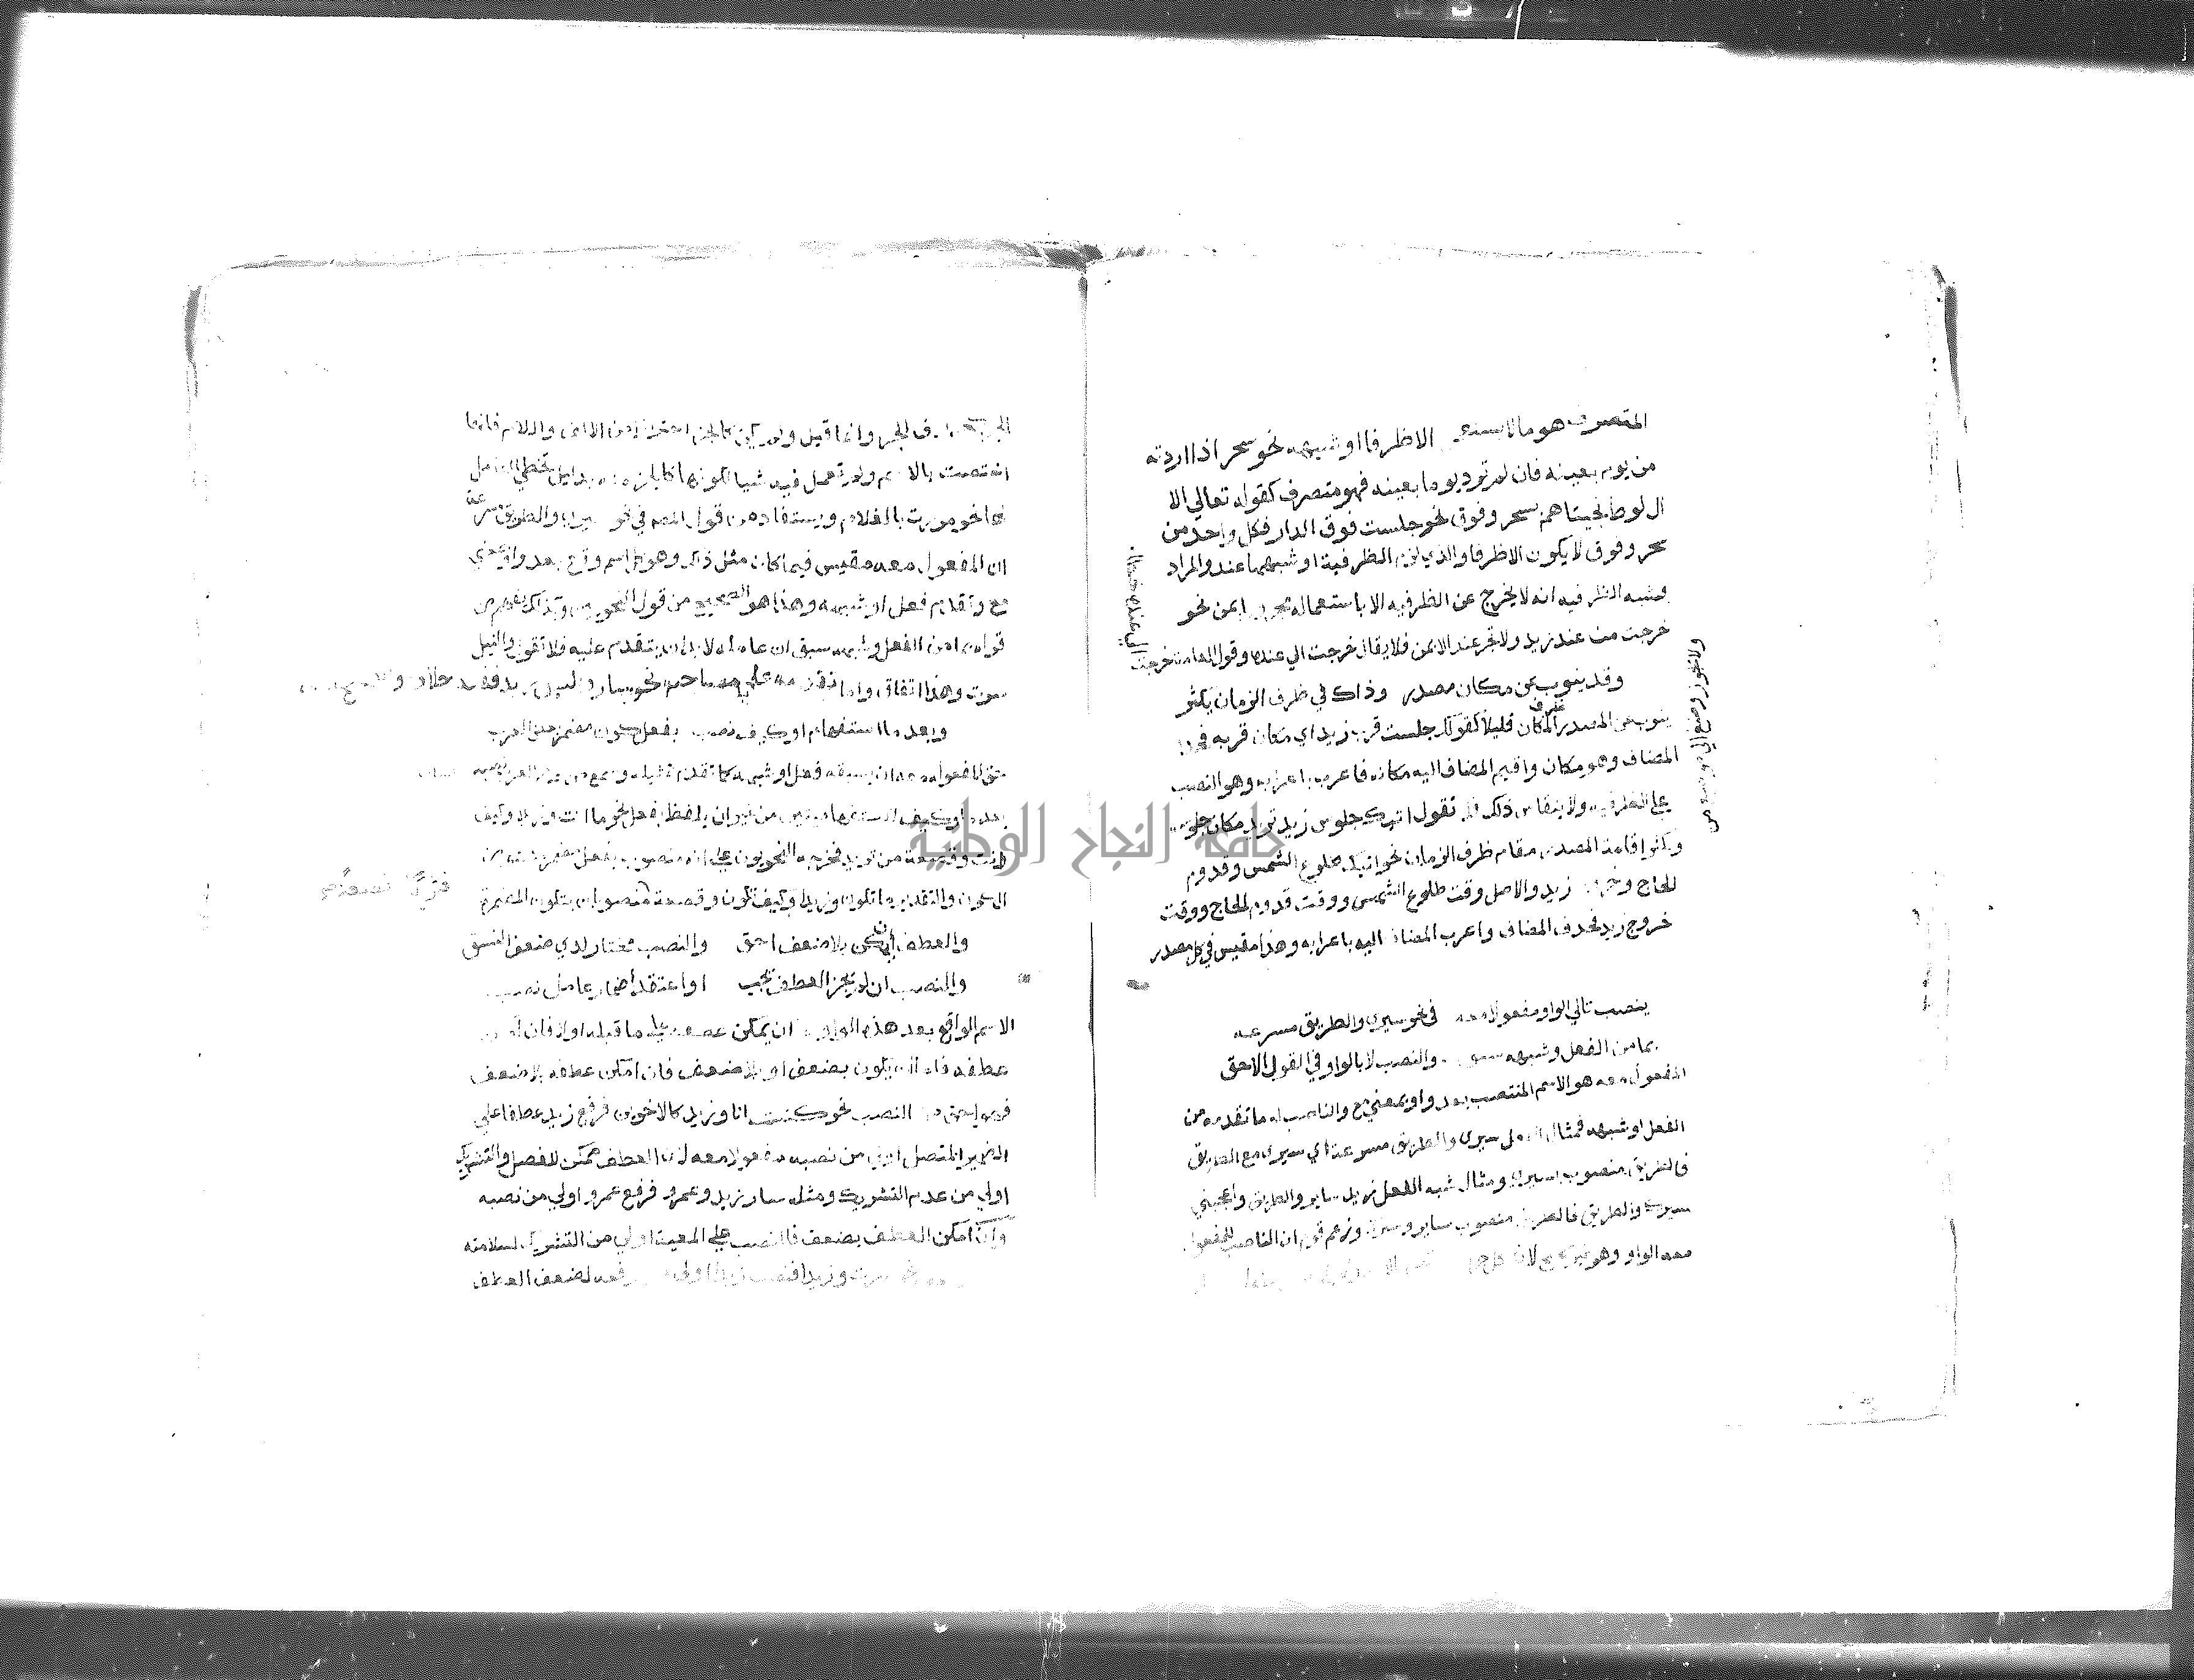 المتصرف هو مالا يستعمل الا ظرفا او شبهه نحو سحر اذا اردته
من يوم بعينه فان لم ترد يوما بعينه فهو متصرف كقوله تعالي الا
ال لوط نجيناهم بسحر وفوق نحو جلست فوق الدار فكل واحد من
سحر وفوق لا يكون الا ظرفا والذي لزم الظرفية او شبهها عند والمراد
بشبه الظرفيه انه لا يخرج عن الظرفيه الا باستعماله مجرورا بمن نحو
خرجت من عند زيد ولا تجر عند الا بمن فلا يقال خرجت الي عنده وقول العامة خرجت
الي عنده خطا
وقد ينوب عن مكان مصدر وذاك في ظرف الزمان يكثر
ينوب عن المصدر ظرف المكان قليلا كقولك جلست قرب زيد اي مكان قربه فحذف
المضاف وهو مكان واقيم المضاف اليه مكانه فاعرب باعرابه وهو النصب
علي الظرفيه ولا ينقاس ذلك فلا تقول اتيك جلوس زيد تريد مكان جلوسه
ويكثر اقامة المصدر مقام ظرف الزمان نحو اتيك طلوع الشمس وقدوم
الحاج وخروج زيد والاصل وقت طلوع الشمس ووقت قدوم الحاج ووقت
خروج زيد فحذف المضاف واعرب المضاف اليه باعرابه وهذا مقيس في كل مصدر
ولا يجوز
ينصب تالي الواو مفعولا معه في نحو سيري والطريق مسرعه
بما من الفعل وشبهه سبق والنصب لا بالواو في القول الاحق
المفعول معه هو الاسم المنتصب بعد واو بمعني مع والناصب له ما تقدمه من
الفعل او شبهه فمثال الفعل سيري والطريق مسرعة اي سيري مع الطريق
فالطريق منصوب بسيري ومثال شبه الفعل زيد ساير والطريق واعجبني
سيرك والطريق فالطريق منصوب بساير وسيرك وزعم قوم ان الناصب للمفعول
معه الواو وهو غير صحيح لان كل حرف
حرف الجر وانما قيل ولم يكن كالجزء احترازا من الالف واللام فانها
اختصت بالاسم ولم تعمل فيه شيا لكونها كالجزء منه بدليل تخطي العامل
لها نحو مررت بالغلام ويستفاد من قول المصنف في نحو سيري والطريق مسرعة
ان المفعول معه مقيس فيما كان مثل ذلك وهو كل اسم وقع بعد واو بمعني
مع وتقدم فعل او شبهه وهذا هو الصحيح من قول النحويين وكذلك يفهم من
قوله بما من الفعل وشبهه سبق ان عامله لا بد ان يتقدم عليه فلا تقول والنيل
سرت وهذا اتفاق واما تقدمه علي مصاحبه نحو سار والنيل زيد ففيه خلاف والصحيح
وبعد ما استفهام او كيف نصب بفعل كون مضمر بعض العرب
حق المفعول معه ان يسبقه فعل او شبهه كما تقدم تمثيله وسمع من كلام العرب نصبه
بعد ما وكيف الاستفهاميتين من غير ان يلفظ بفعل نحو ما انت وزيدا وكيف
انت وقصعة من ثريد فخرجه النحويون علي انه منصوب بفعل مضمر مشتق من
الكون والتقدير ما تكون وزيدا وكيف تكون وقصعة فزيدا وقصعة منصوبان بتكون المضمرة
والعطف ان يمكن بلا ضعف احق والنصب مختار لدي ضعف النسق
والنصب ان لم يجز العطف يجب او اعتقد اضمار عامل تصب
الاسم الواقع بعد هذه الواو اما ان يمكن عطفه علي ما قبله او لا فان امكن
عطفه فاما ان يكون بضعف او بلا ضعف فان امكن عطفه بلا ضعف
فهو احق من النصب نحو كنت انا وزيد كالاخوين فرفع زيد عطفا علي
الضمير المتصل اولي من نصبه مفعولا معه لان العطف ممكن للفصل والتشريك
اولي من عدم التشريك ومثله سار زيد وعمرو فرفع عمرو اولي من نصبه
وان امكن العطف بضعف فالنصب علي المعية اولي من التشريك لسلامته
نحو سرت وزيدا فنصب زيدا اولي من رفعه لضعف العطف
جامعة النجاح الوطنية